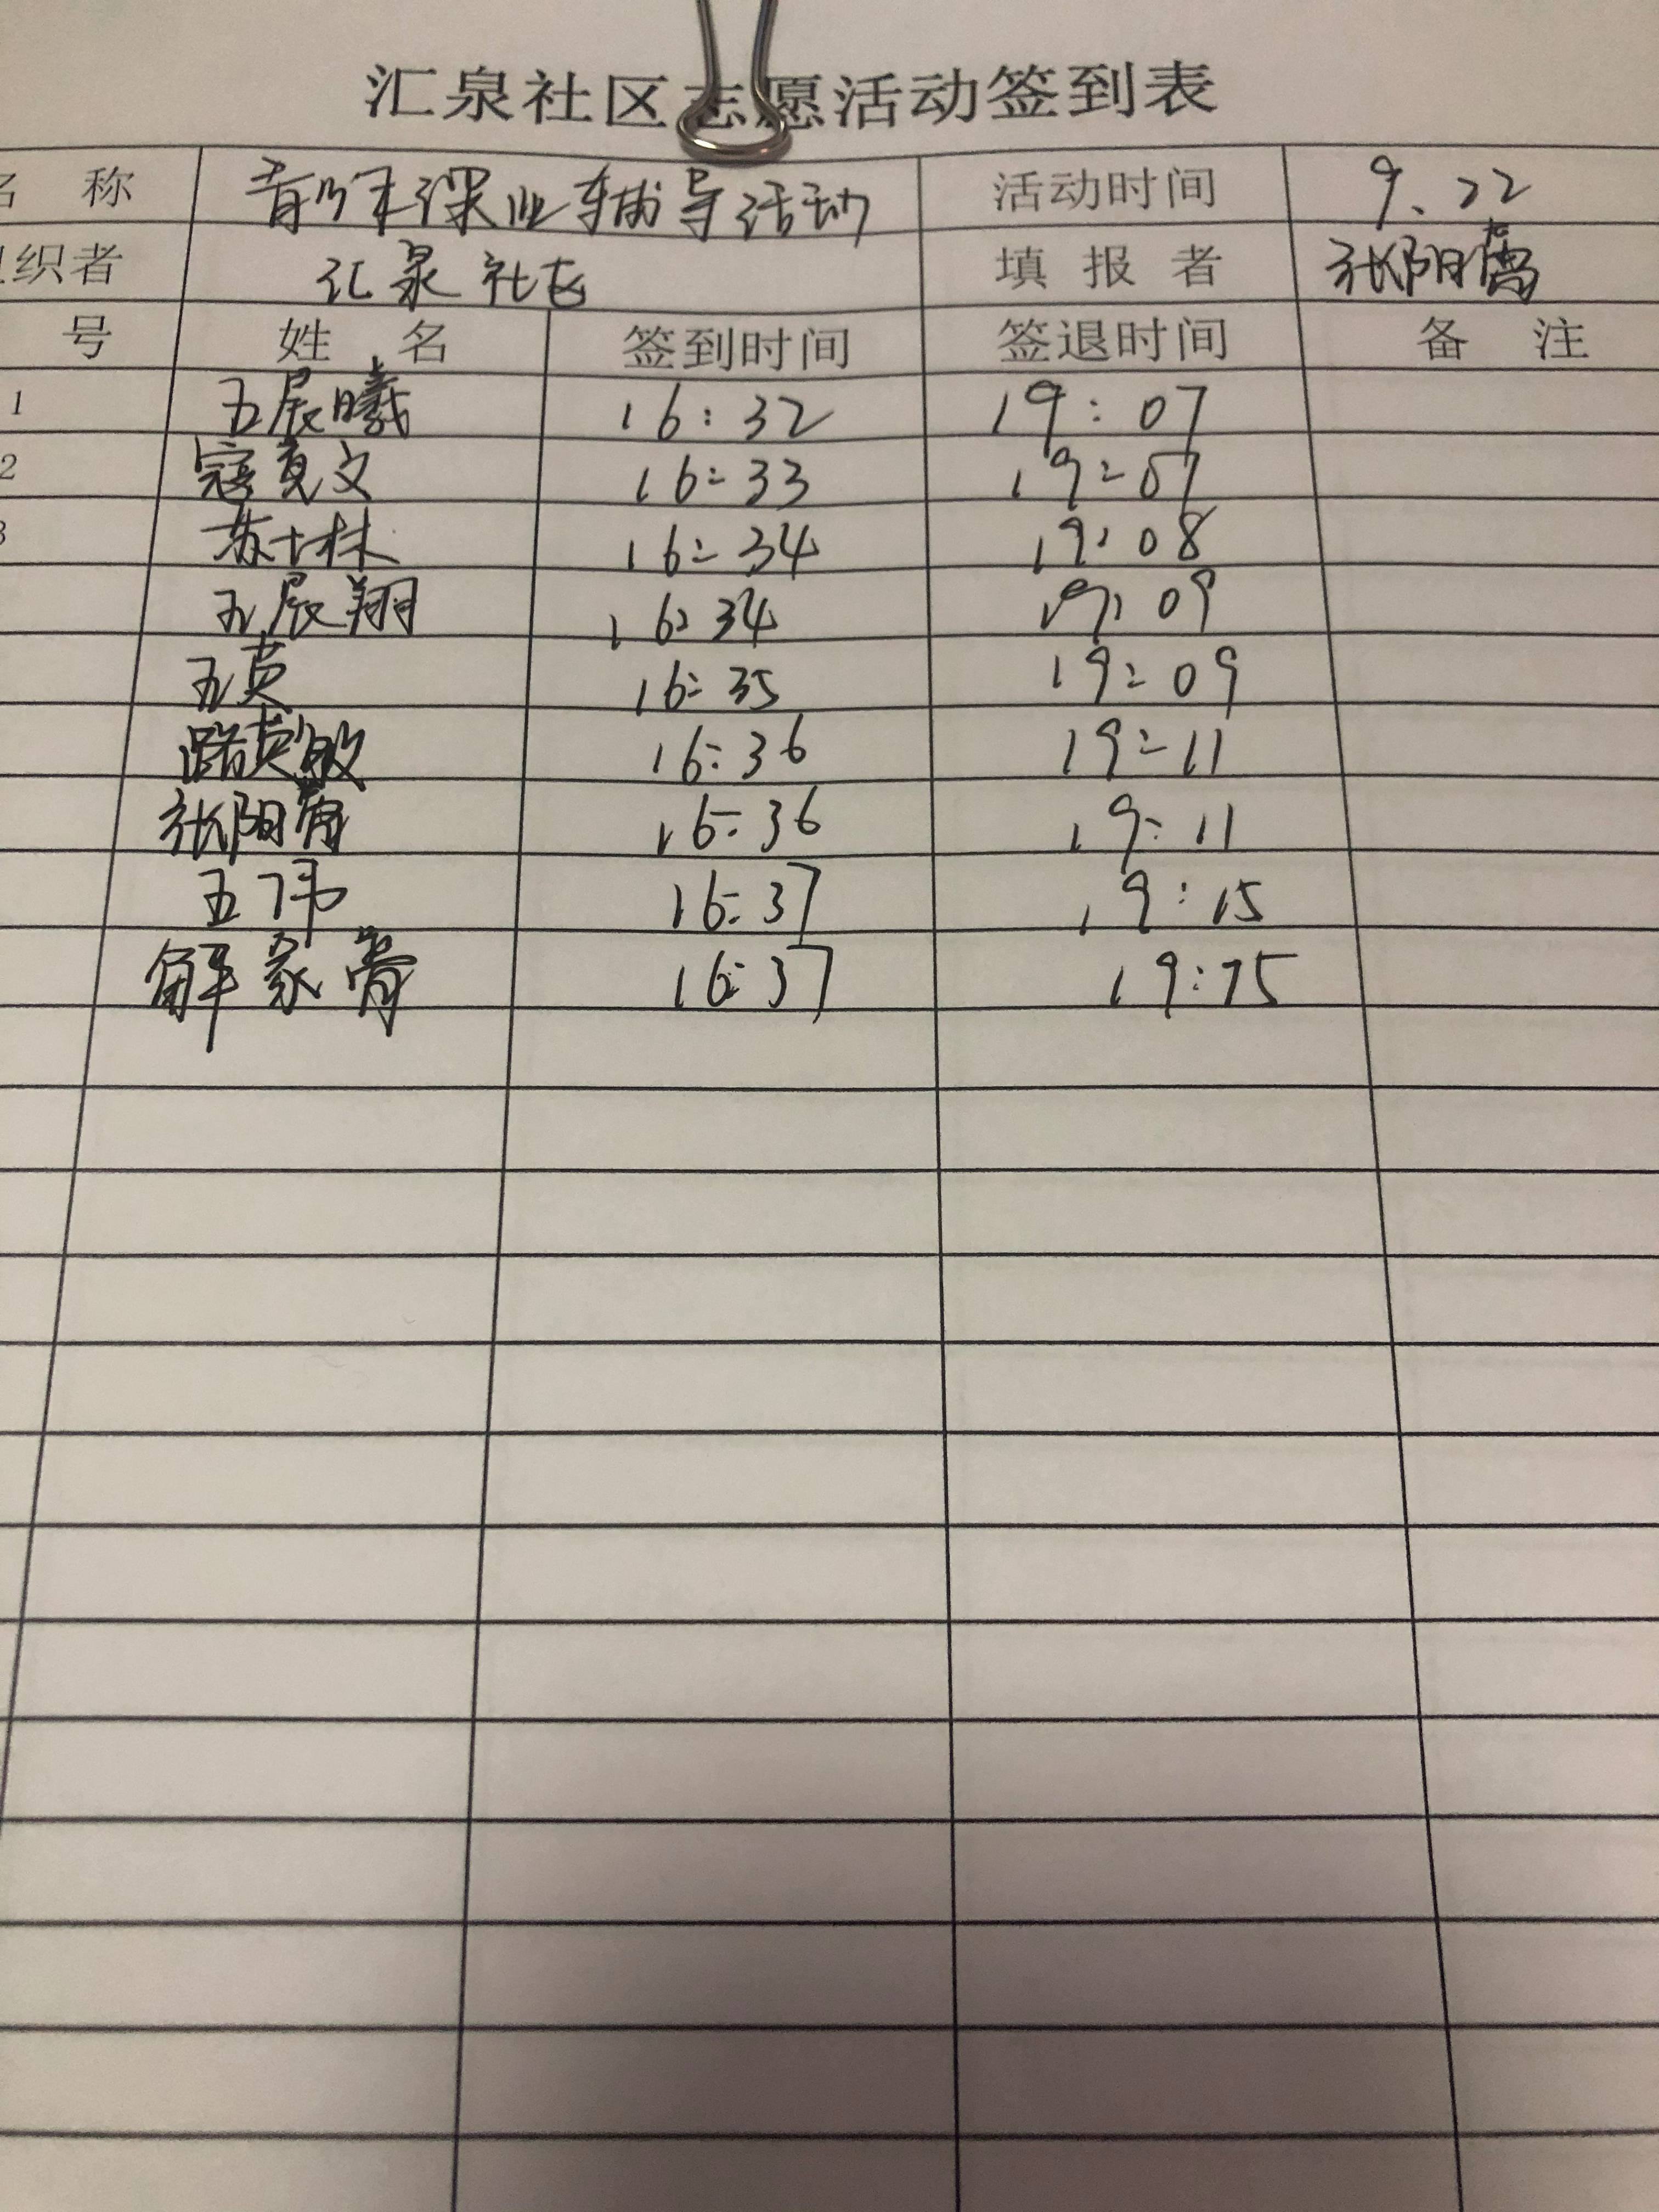 汇泉社区志愿活动签到表
名 称 青少年课业辅导活动 活动时间 9.22
组织者 汇泉社区 填报者 张阳
号 姓 名 签到时间 签退时间 备 注
1 王辰曦 16:32 19:07
2 寇真文 16:33 19:07
3 苏士林 16:34 19:08
王辰翔 16:34 19:09
王英 16:35 19:09
路英敏 16:36 19:11
张阳 16:36 19:11
王伟 16:37 19:15
解家 16:37 19:15